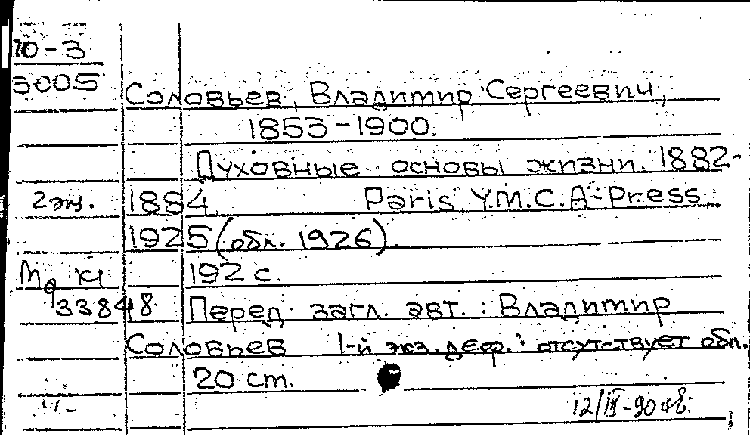 Ю-3
3005
Соловьев, Владимир Сергеевич,
1853-1900.
Духовные основы жизни. 1882-
2 экз. 1884. Paris, Y.M.C.A-Press
1925 (обл. 1926).
192 с.
33848 Перед загл. авт.: Владимир
Соловьев 1-й экз. деф.: отсутствует обл.
20 cm.